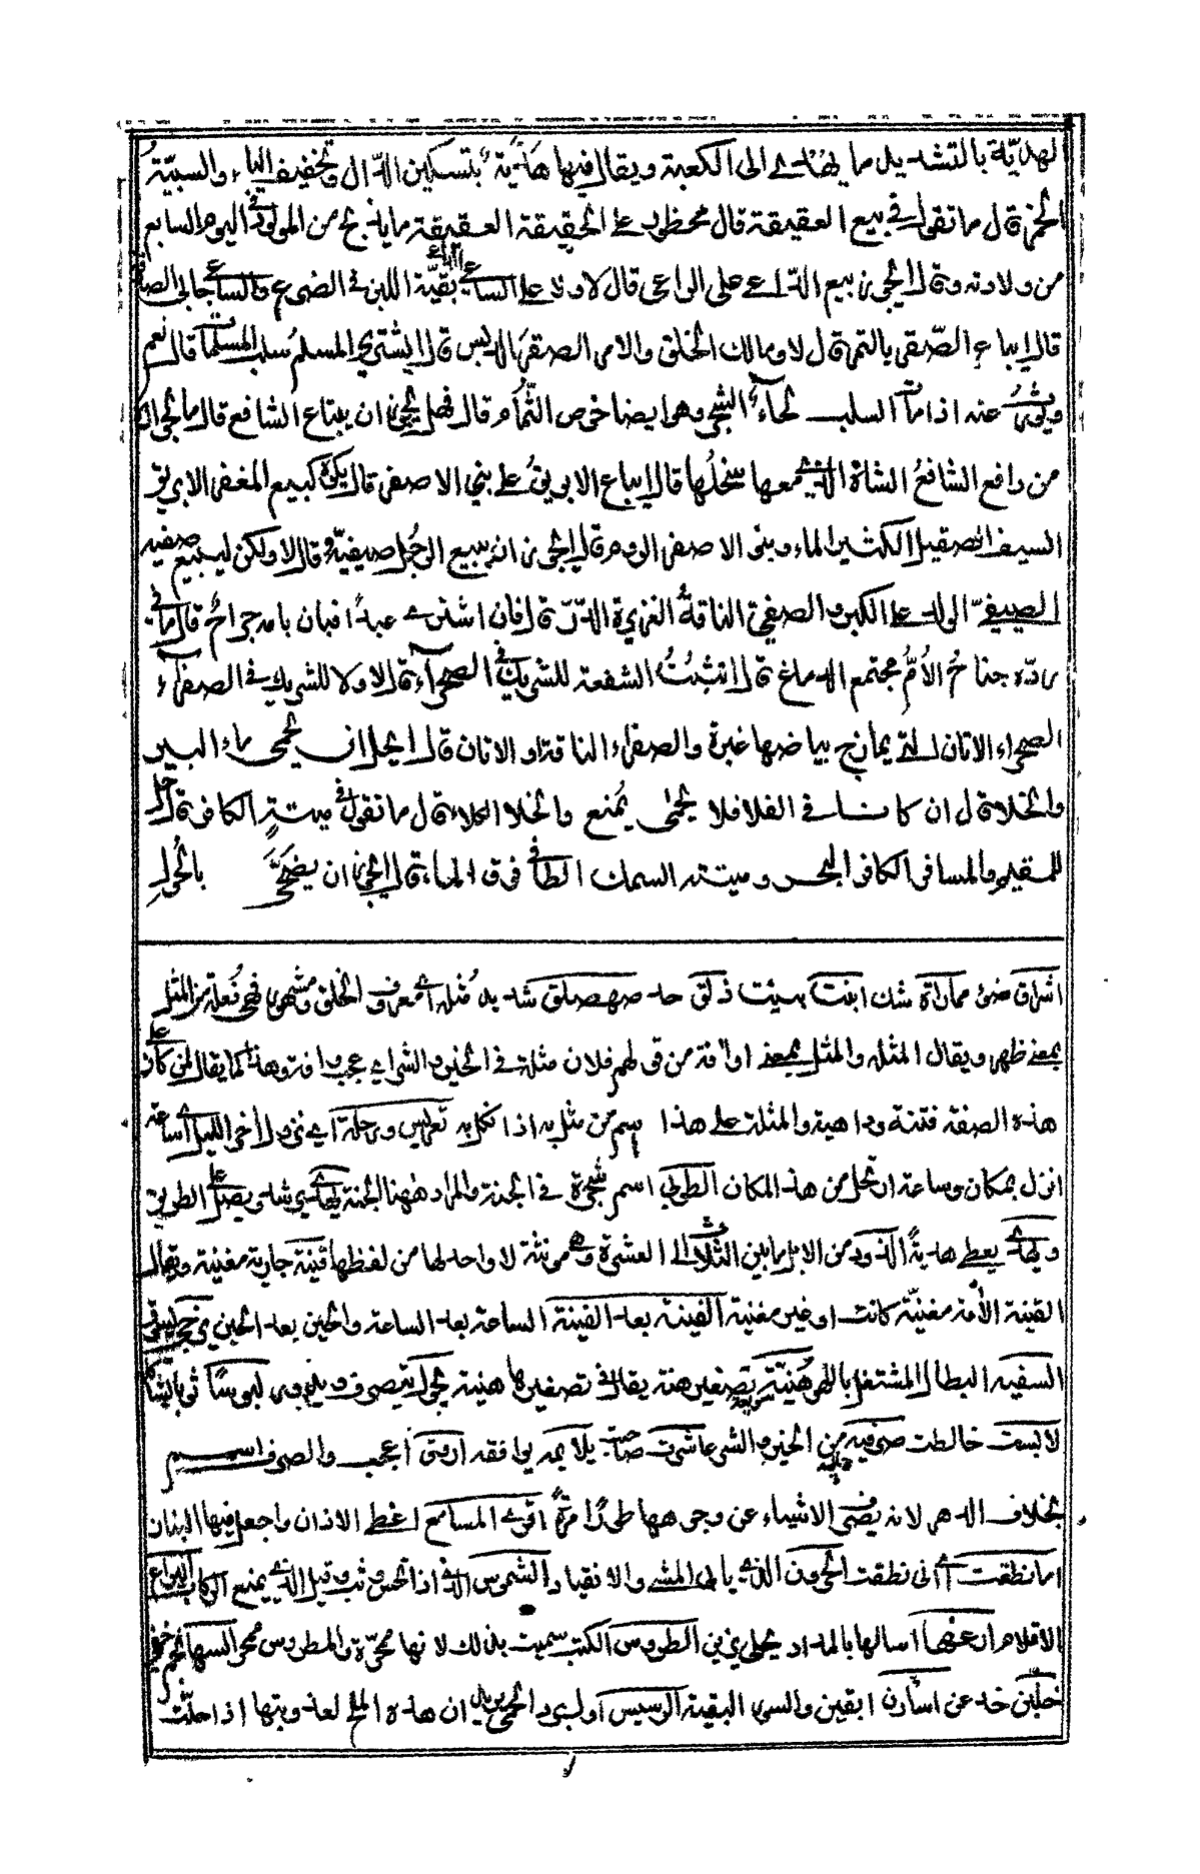 الهديّة بالتشديد ما يهدى الى الكعبة ويقال فيها هَدْية بتسكين الدال وتخفيف الياء والسبيّة
الخمر قال ما تقول في بيع العقيقة قال محظور على الحقيقة العقيقة ما يذبح من المولود في اليوم السابع
من ولادته قال ايجوز بيع الداعى على الراعى قال لا ولا على الساعى بقيّة اللبن في الضرع والساعى جابى
قال ايباع الصقر بالتمر قال لا ومالك الخلق والامر الصقر الدبس قال ايشترى المسلم سلب المسلمات قال نعم
ويورث عنه اذا مات السلب لحاء الشجر وهو ايضا خوص الثمام قال فهل يجوز ان يبتاع الشافع قال ما لجوازه
من دافع الشافع الشاة التى معها سخلها قال ايباع الابريق على بنى الاصفر قال يكره كبيع المغفر الابريق
السيف الصقيل الكثير الماء وبنو الاصفر الروم قال ايجوز ان يبيع الرجل صيفيّه قال لا ولكن ليبيع صفيه
الصيفىّ الولد على الكبر والصفى الناقة الغزيرة الدرّ قال فان اشترى عبدا فبان بامه جراح قال ما في
ردّه جناح الاُمّ مجتمع الدماغ قال اتثبت الشفعة للشريك في الصحراء قال لا ولا للشريك في الصفراء
الصحراء الاتان التى يمازج بياضها غبرة والصفراء الناقة او الاتان قال ايحل ان يحمى ماء البير
والخلا قال ان كانا في الفلا فلا يحمى يمنع والخلا الكلاء قال ما تقول في ميتة الكافر قال حل
للمقيم والمسافر الكافر البحر وميتته السمك الطافى فوق الماء قال ايجوز ان يضحّى بالحول
اشراق ضوء مماراة شك ابنت بيئت ذلق حد صهصلق شديد مُثله اى معروف الخلق ومشهور فهى فُعلة من المثل
بمعنى ظهر ويقال المثله والمثل بمعنى او افة من قولهم فلان مثلة في الخير والشر اى عجب وافة وهذا كما يقال لمن كان على
هذه الصفة فتنة وداهية والمثلة على هذا اسم من مثل به اذا نكل به تعريس ورحلة اى نزول اخر الليل اى ساعة
انزل بمكان وساعة ارتحل من هذا المكان الطوبى اسم شجرة في الجنة والمراد ههنا الجنة يهدى يرشد ويصل الى الطريق
ويهدى يعطى هدية الذود من الابل ما بين الثلاث الى العشرة وهى مونثة لا واحد لها من لفظها قينة جارية مغنية ويقال
القينة الأمة مغنيّة كانت او غير مغنية الفينة بعد الفينة الساعة بعد الساعة والحين بعد الحين
السفيه البطال المشتغل باللهو هُنيّة تصغير هنة يقال في تصغيرها هنية يجول يتصرف ويدور لبوسا ثوبا
لابست خالطت صرفيه من الخير والشر عاشرت صاحبت يلايمه يوافقه اروق اُعجب والصرف اسم
بخلاف الدهر لانه يصرف الاشياء عن وجوهها طورا مرة اقرى المسامع اعطى الاذان واجعل فيها البنان
اما نطقت اى انى نطقت الحرون الذى يابى المشى والانقياد الشموس الذى اذا نخس وثب وقيل الذى يمنع الركاب اليراع
الاقلام ارعفها اسالها بالمداد يحلى يزين الطروس الكتب سميت بذلك لانها ممحوّة والمطروس ممحو السها نجم خفى
خلبن خدعن اسأرن ابقين والسور البقية الرسيس اول برد الحمى يريد ان هذه الملح لعذوبتها اذا حلّت